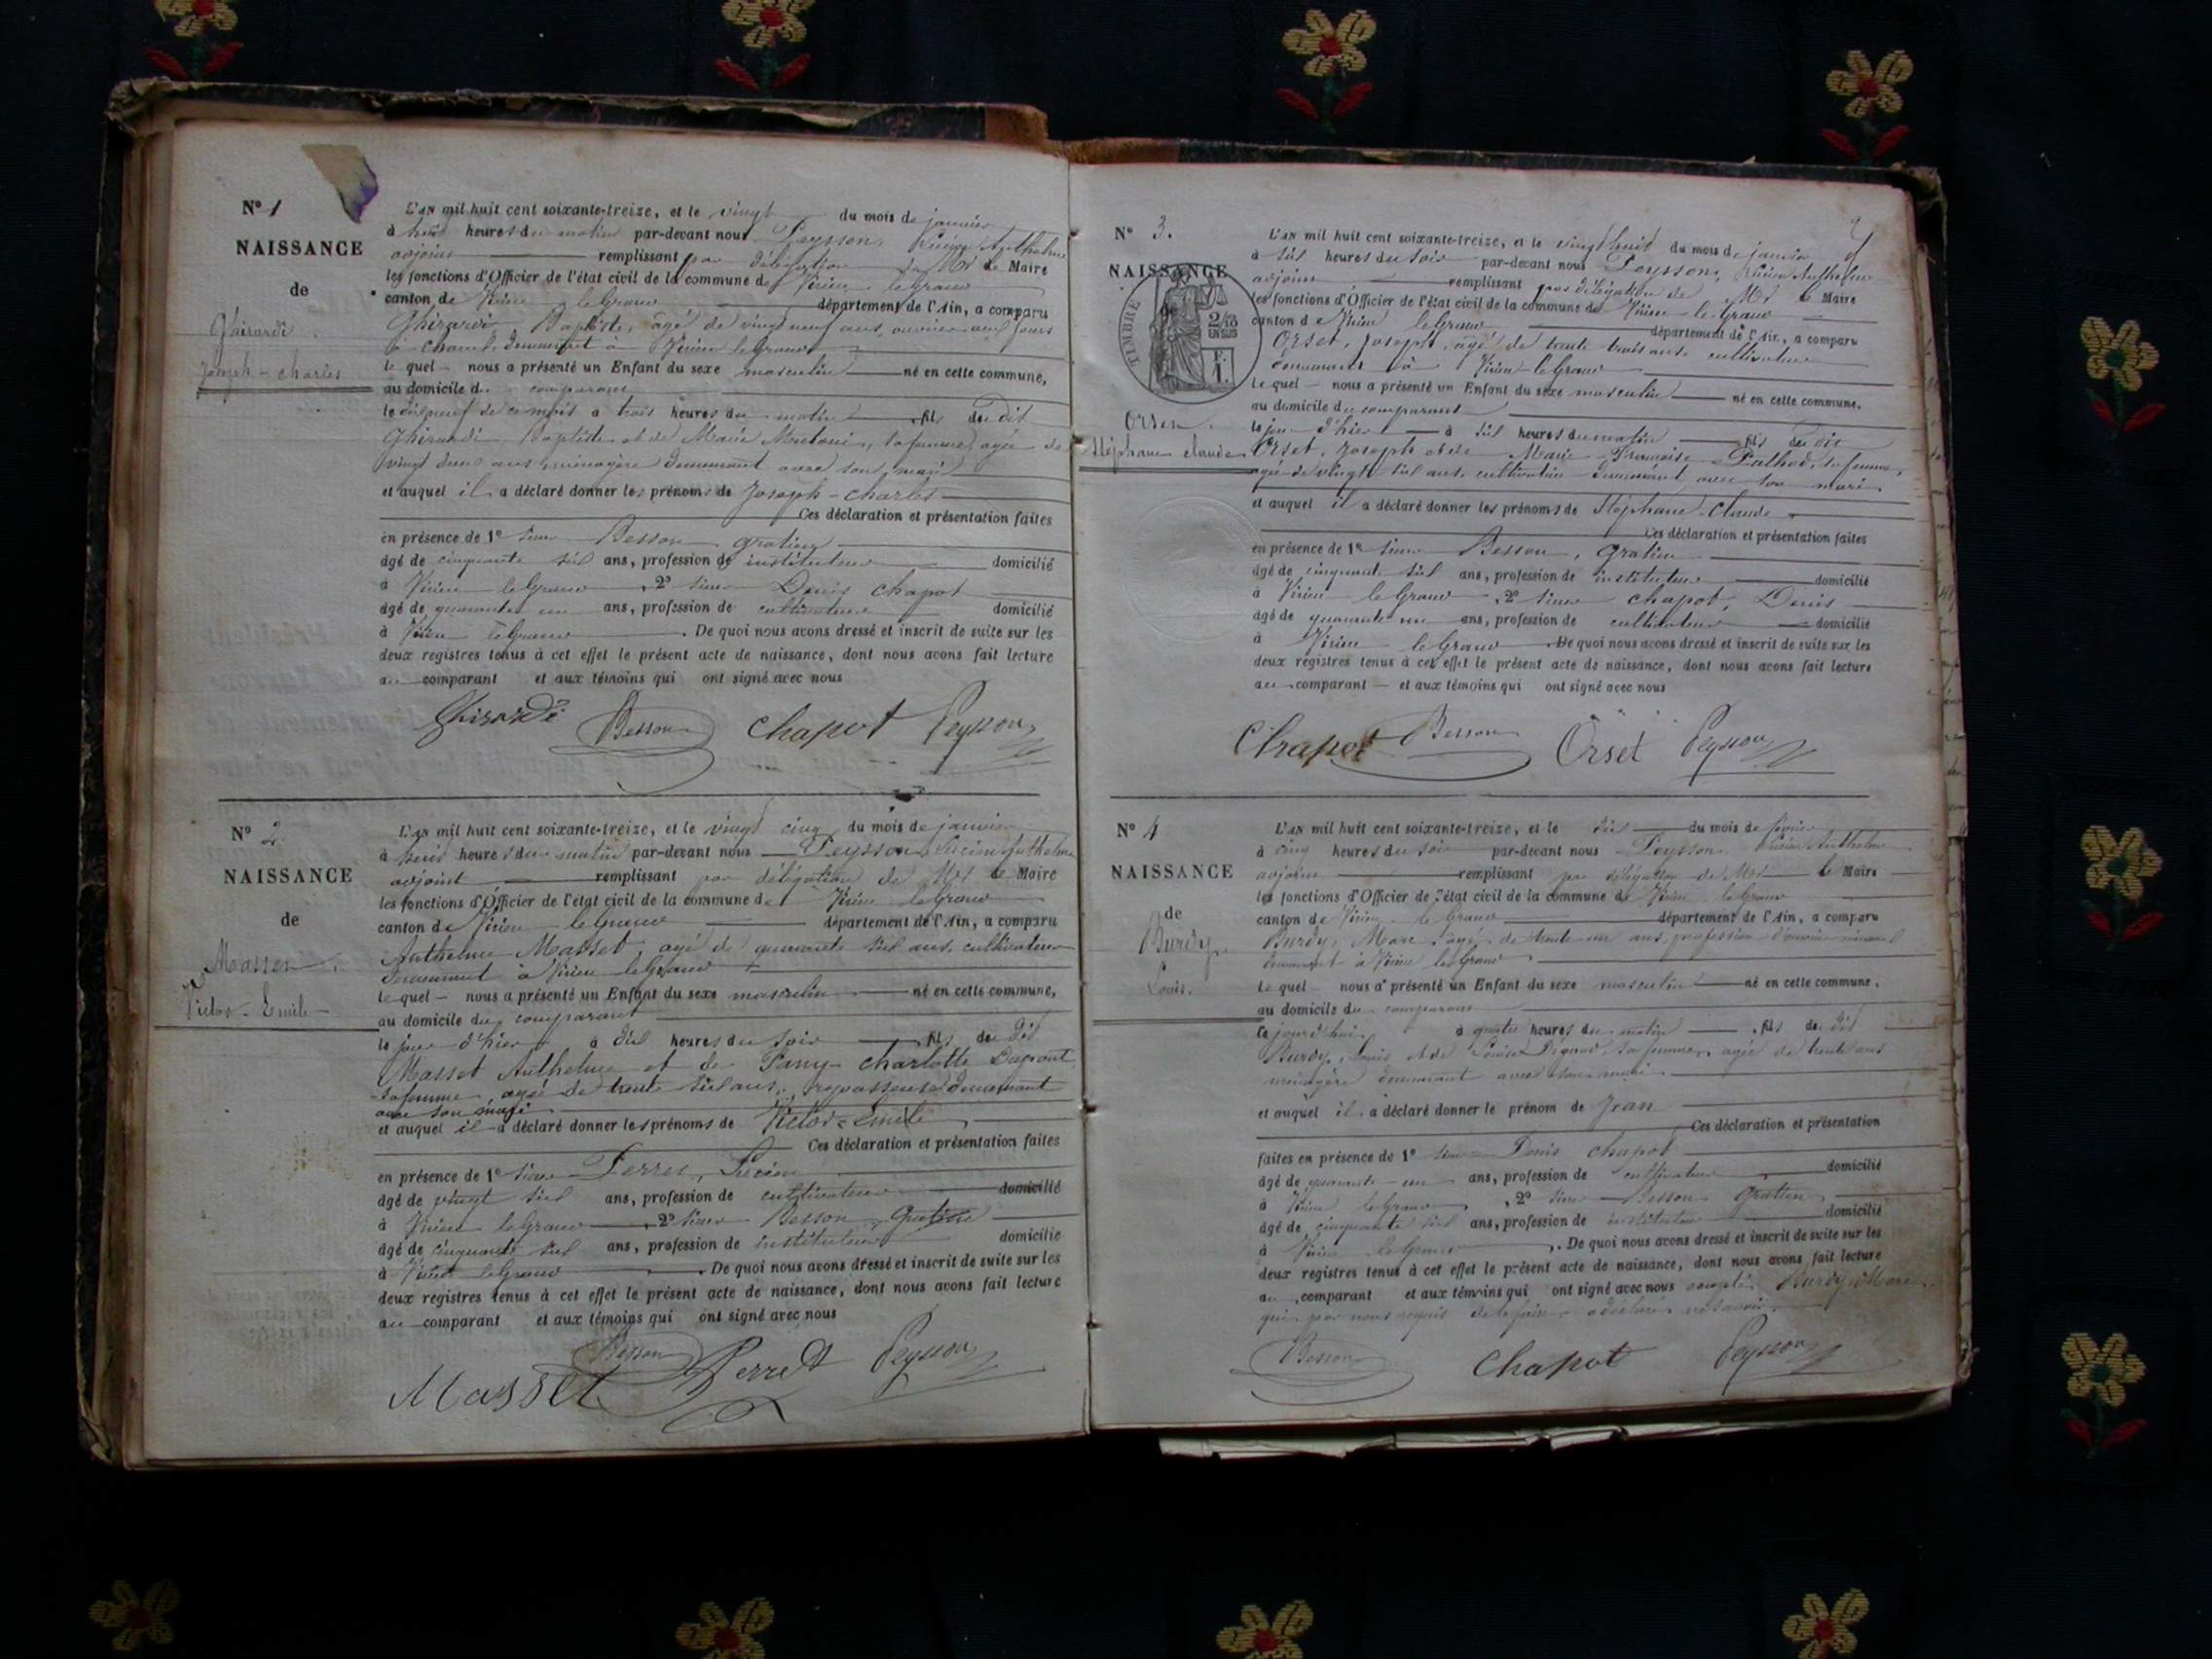 N° 1
NAISSANCE
de
Ghirardi
Joseph-charles
L'AN mil huit cent soixante-treize, et le vingt du mois de janvier
à huit heures du matin par-devant nous Peysson, Lucien Anthelme
adjoint remplissant par délégation de Mr le Maire
les fonctions d'Officier de l'état civil de la commune de Virieu le Grand
canton de Virieu le Grand département de l'Ain, a comparu
Ghirardi, Baptiste, âgé de vingt neuf ans, ouvrier aux fours
à chaux, demeurant à Virieu le Grand
le quel nous a présenté un Enfant du sexe masculin né en cette commune,
au domicile du comparant
le dix neuf de ce mois à trois heures du matin fils du dit
Ghirardi Baptiste et de Marie sa femme, agée de
vingt deux ans ménagère demeurant avec son mari
et auquel il a déclaré donner les prénoms de Joseph-charles
Ces déclaration et présentation faites
en présence de 1° sieur Besson gratien
âgé de cinquante six ans, profession de instituteur domicilié
à Virieu le Grand, 2° sieur Denis chapot
âgé de quarante un ans, profession de cultivateur domicilié
à Virieu le Grand. De quoi nous avons dressé et inscrit de suite sur les
deux registres tenus à cet effet le présent acte de naissance, dont nous avons fait lecture
au comparant et aux témoins qui ont signé avec nous
Ghirardi Besson chapot Peysson
N° 2
NAISSANCE
de
Masset
Victor-Emile
L'AN mil huit cent soixante-treize, et le vingt cinq du mois de janvier
à huit heures du matin par-devant nous Peysson Lucien Anthelme
adjoint remplissant par délégation de Mr le Maire
les fonctions d'Officier de l'état civil de la commune de Virieu le Grand
canton de Virieu le Grand département de l'Ain, a comparu
Anthelme Masset agé de quarante six ans, cultivateur
demeurant à Virieu le Grand
le quel nous a présenté un Enfant du sexe masculin né en cette commune,
au domicile du comparant
le jour d'hier à dix heures du soir fils du dit
Masset Anthelme et de Fany charlotte Dupont
sa femme, agé de trente six ans, repasseuse demeurant
avec son mari
et auquel il a déclaré donner les prénoms de Victor-Emile
Ces déclaration et présentation faites
en présence de 1° sieur Perret, Lucien
âgé de vingt six ans, profession de cultivateur domicilié
à Virieu le Grand, 2° sieur Besson gratien
âgé de cinquante six ans, profession de instituteur domicilié
à Virieu le Grand. De quoi nous avons dressé et inscrit de suite sur les
deux registres tenus à cet effet le présent acte de naissance, dont nous avons fait lecture
au comparant et aux témoins qui ont signé avec nous
Masset Besson Perret Peysson
2
N° 3.
NAISSANCE
TIMBRE
2/10
EN SUS
1 F.
Orset
Stéphane claude
L'AN mil huit cent soixante-treize, et le vingt huit du mois de janvier
à six heures du soir par-devant nous Peysson, Lucien Anthelme
adjoint remplissant par délégation de Mr le Maire
les fonctions d'Officier de l'état civil de la commune de Virieu le Grand
canton de Virieu le Grand département de l'Ain, a comparu
Orset, Joseph, agé de trente trois ans, cultivateur
demeurant à Virieu-le Grand
le quel nous a présenté un Enfant du sexe masculin né en cette commune,
au domicile du comparant
le jour d'hier à six heures du matin fils du dit
Orset, Joseph et de Marie Françoise sa femme,
agée de vingt six ans, cultivatrice demeurant avec son mari
et auquel il a déclaré donner les prénoms de Stéphane-Claude
Ces déclaration et présentation faites
en présence de 1° sieur Besson, gratien
âgé de cinquante six ans, profession de instituteur domicilié
à Virieu le Grand, 2° sieur chapot, Denis
âgé de quarante un ans, profession de cultivateur domicilié
à Virieu le Grand. De quoi nous avons dressé et inscrit de suite sur les
deux registres tenus à cet effet le présent acte de naissance, dont nous avons fait lecture
au comparant et aux témoins qui ont signé avec nous
Chapot Besson Orset Peysson
N° 4
NAISSANCE
de
Burdy
Louis.
L'AN mil huit cent soixante-treize, et le six du mois de février
à cinq heures du soir par-devant nous Peysson Lucien Anthelme
adjoint remplissant par délégation de Mr le Maire
les fonctions d'Officier de l'état civil de la commune de Virieu le Grand
canton de Virieu le Grand département de l'Ain, a comparu
Burdy, Marc agé de trente un ans, profession d'ouvrier mineur
demeurant à Virieu le Grand
le quel nous a présenté un Enfant du sexe masculin né en cette commune,
au domicile du comparant
ce jourd'hui à quatre heures du matin fils du dit
Burdy, Louis et de Louise sa femme, agée de trente ans
ménagère demeurant avec son mari
et auquel il a déclaré donner le prénom de Jean
Ces déclaration et présentation
faites en présence de 1° sieur Denis chapot
âgé de quarante-un ans, profession de cultivateur domicilié
à Virieu le Grand, 2° sieur Besson gratien
âgé de cinquante six ans, profession de instituteur domicilié
à Virieu le Grand. De quoi nous avons dressé et inscrit de suite sur les
deux registres tenus à cet effet le présent acte de naissance, dont nous avons fait lecture
au comparant et aux témoins qui ont signé avec nous excepté Burdy, Marc
qui par nous requis de le faire a déclaré ne savoir
Besson chapot Peysson